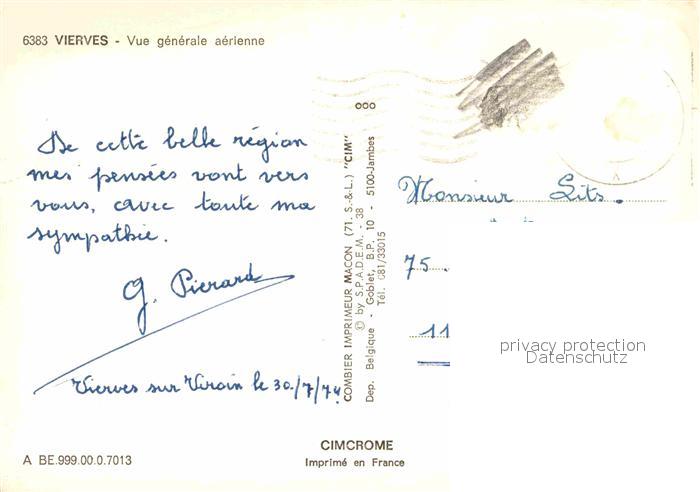 6383 VIERVES - Vue générale aérienne
De cette belle région
mes pensées vont vers
vous, avec toute ma
sympathie.
G. Pierard
Vierves sur Viroin le 30/7/74
A BE.999.00.0.7013
COMBIER IMPRIMEUR MACON (71. S.-&.L.) "CIM"
© by S.P.A.D.E.M. - 38
Dep. Belgique - Goblet, B.P. 10 - 5100-Jambes
Tél. 081/33015
CIMCROME
Imprimé en France
Monsieur Lits.
75
11
privacy protection
Datenschutz